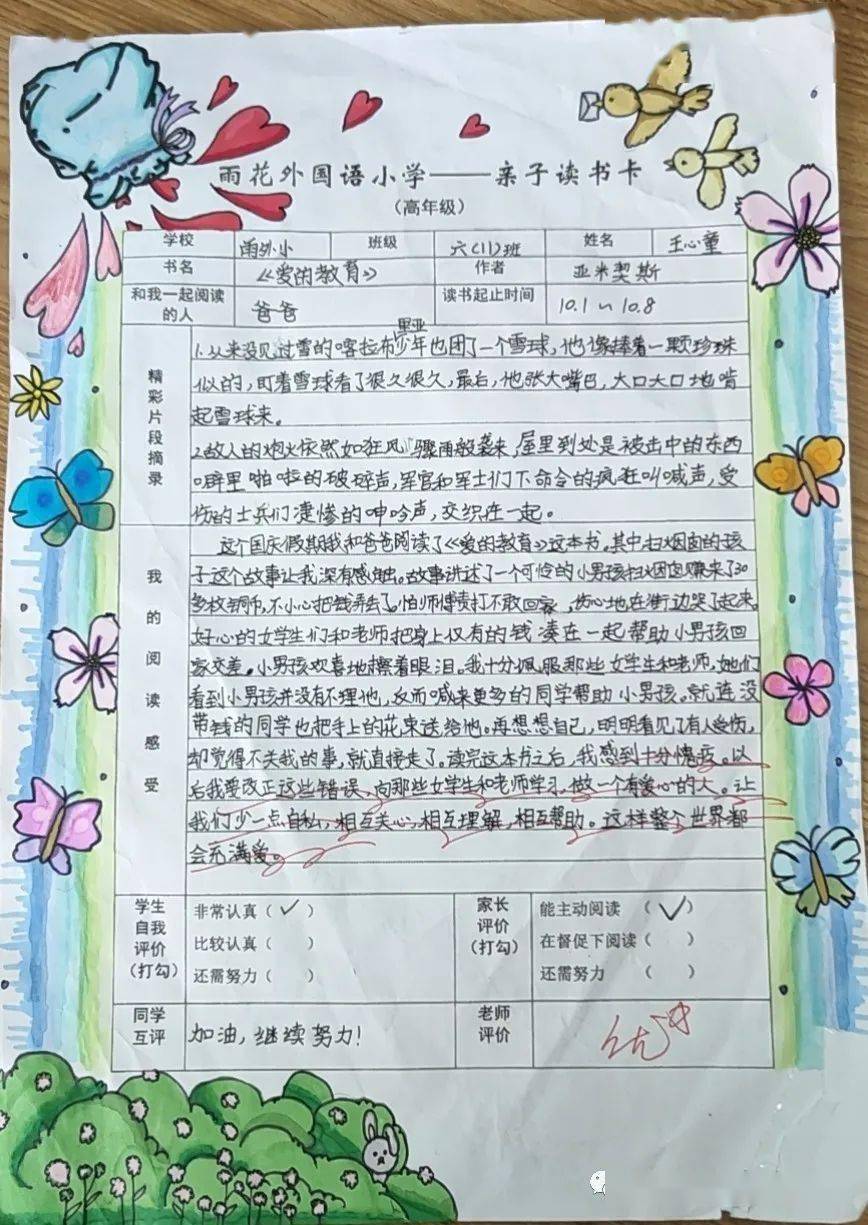 雨花外国语小学——亲子读书卡
（高年级）
学校 雨外小 班级 六(11)班 姓名 王心童
书名 《爱的教育》 作者 亚米契斯
和我一起阅读的人 爸爸 读书起止时间 10.1~10.8
精彩片段摘录
1.从来没见过雪的喀拉布里亚少年也团了一个雪球，他像捧着一颗珍珠
似的，盯着雪球看了很久很久，最后，他张大嘴巴，大口大口地啃
起雪球来。
2.敌人的炮火依然如狂风骤雨般袭来，屋里到处是被击中的东西
噼里啪啦的破碎声，军官和军士们下命令的疯狂叫喊声，受
伤的士兵们凄惨的呻吟声，交织在一起。
我的阅读感受
这个国庆假期我和爸爸阅读了《爱的教育》这本书。其中扫烟囱的孩
子这个故事让我深有感触。故事讲述了一个可怜的小男孩扫烟囱赚来了30
多枚铜币，不小心把钱弄丢了。怕师傅责打不敢回家，伤心地在街边哭了起来。
好心的女学生们和老师把身上仅有的钱凑在一起帮助小男孩回
家交差。小男孩欢喜地擦着眼泪。我十分佩服那些女学生和老师，她们
看到小男孩并没有不理他，反而喊来更多的同学帮助小男孩。就连没
带钱的同学也把手上的花束送给他。再想想自己，明明看见了有人受伤，
却觉得不关我的事，就直接走了。读完这本书之后，我感到十分愧疚。以
后我要改正这些错误，向那些女学生和老师学习，做一个有爱心的人。让
我们少一点自私，相互关心，相互理解，相互帮助。这样整个世界都
会充满爱。
学生自我评价（打勾） 非常认真（✓） 家长评价（打勾） 能主动阅读（✓）
比较认真（ ） 在督促下阅读（ ）
还需努力（ ） 还需努力（ ）
同学互评 加油，继续努力！ 老师评价 优